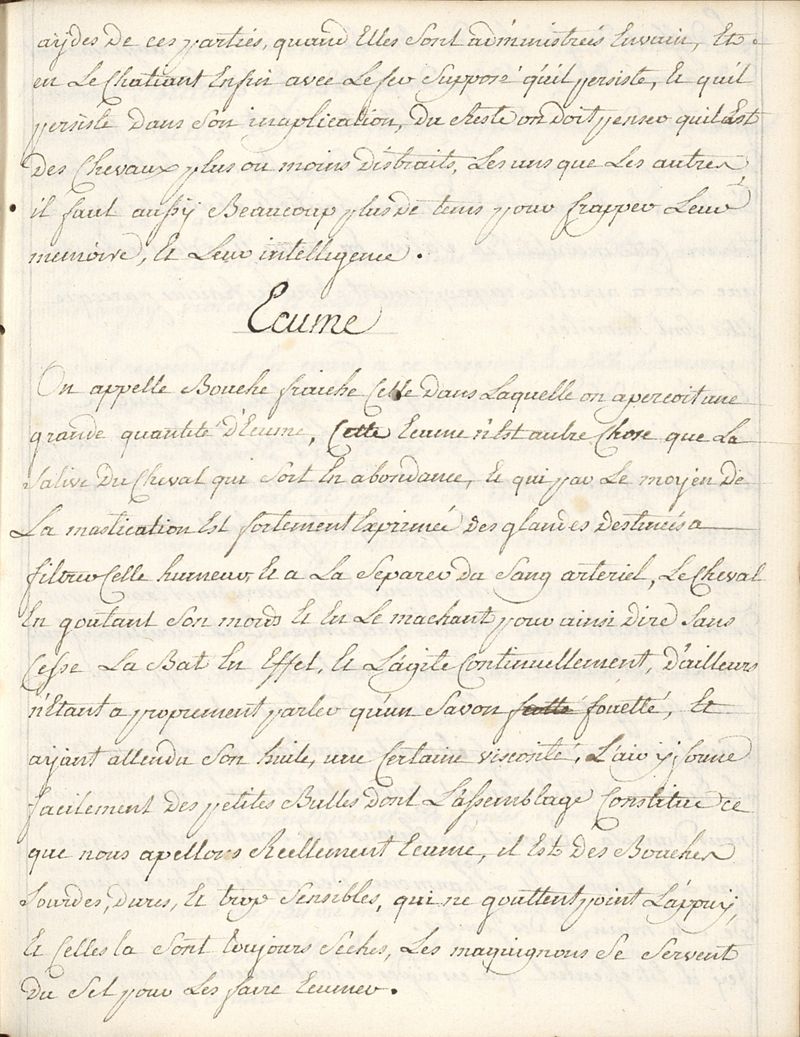 aÿdes de ces partiés, quand Elles sont administreés Envain, Et
en Le Chatiant Enfin avec Le fer Supposé qu'il persiste, Et qu'il
persiste dans Son inaplication, Du Reste on doit penser quil Est
Des Chevaux plus ou moins distraits, Les uns que Les autres,
il faut aussÿ Beaucoup plus de tems pour frapper Leur
memoire, Et Leur intelligence.
Ecume
On appelle Bouche fraiche Celle dans Laquelle on apercoit une
grande quantité d'Ecume, Cette Ecume n'Est autre Chose que La
Salive Du Cheval qui Sort En abondance, Et qui par Le moÿen de
La mastication Est fortement Exprimeé des glandes destineés a
filtrer Celle humeur, Et a La Separer du Sang arteriel, Le Cheval
En goutant Son mords Et En Le machant pour ainsi dire Sans
Cesse La Bat En Effet, Et L'agite Continuellement, d'ailleurs
n'Etant a proprement parler qu'un Savon fouetté, Et
aÿant attendu Son huile, une Certaine viscosité, L'air ÿ forme
facilement des petites Bulles dont L'assemblage Constitue ce
que nous apellons Réellement Ecume, il Est des Bouches
Sourdes, dures, Et trop Sensibles, qui ne gouttent point L'appuÿ,
Et Celles la Sont toujours Seches, Les maquignons Se Servent
du Sel pour Les faire Ecumer.